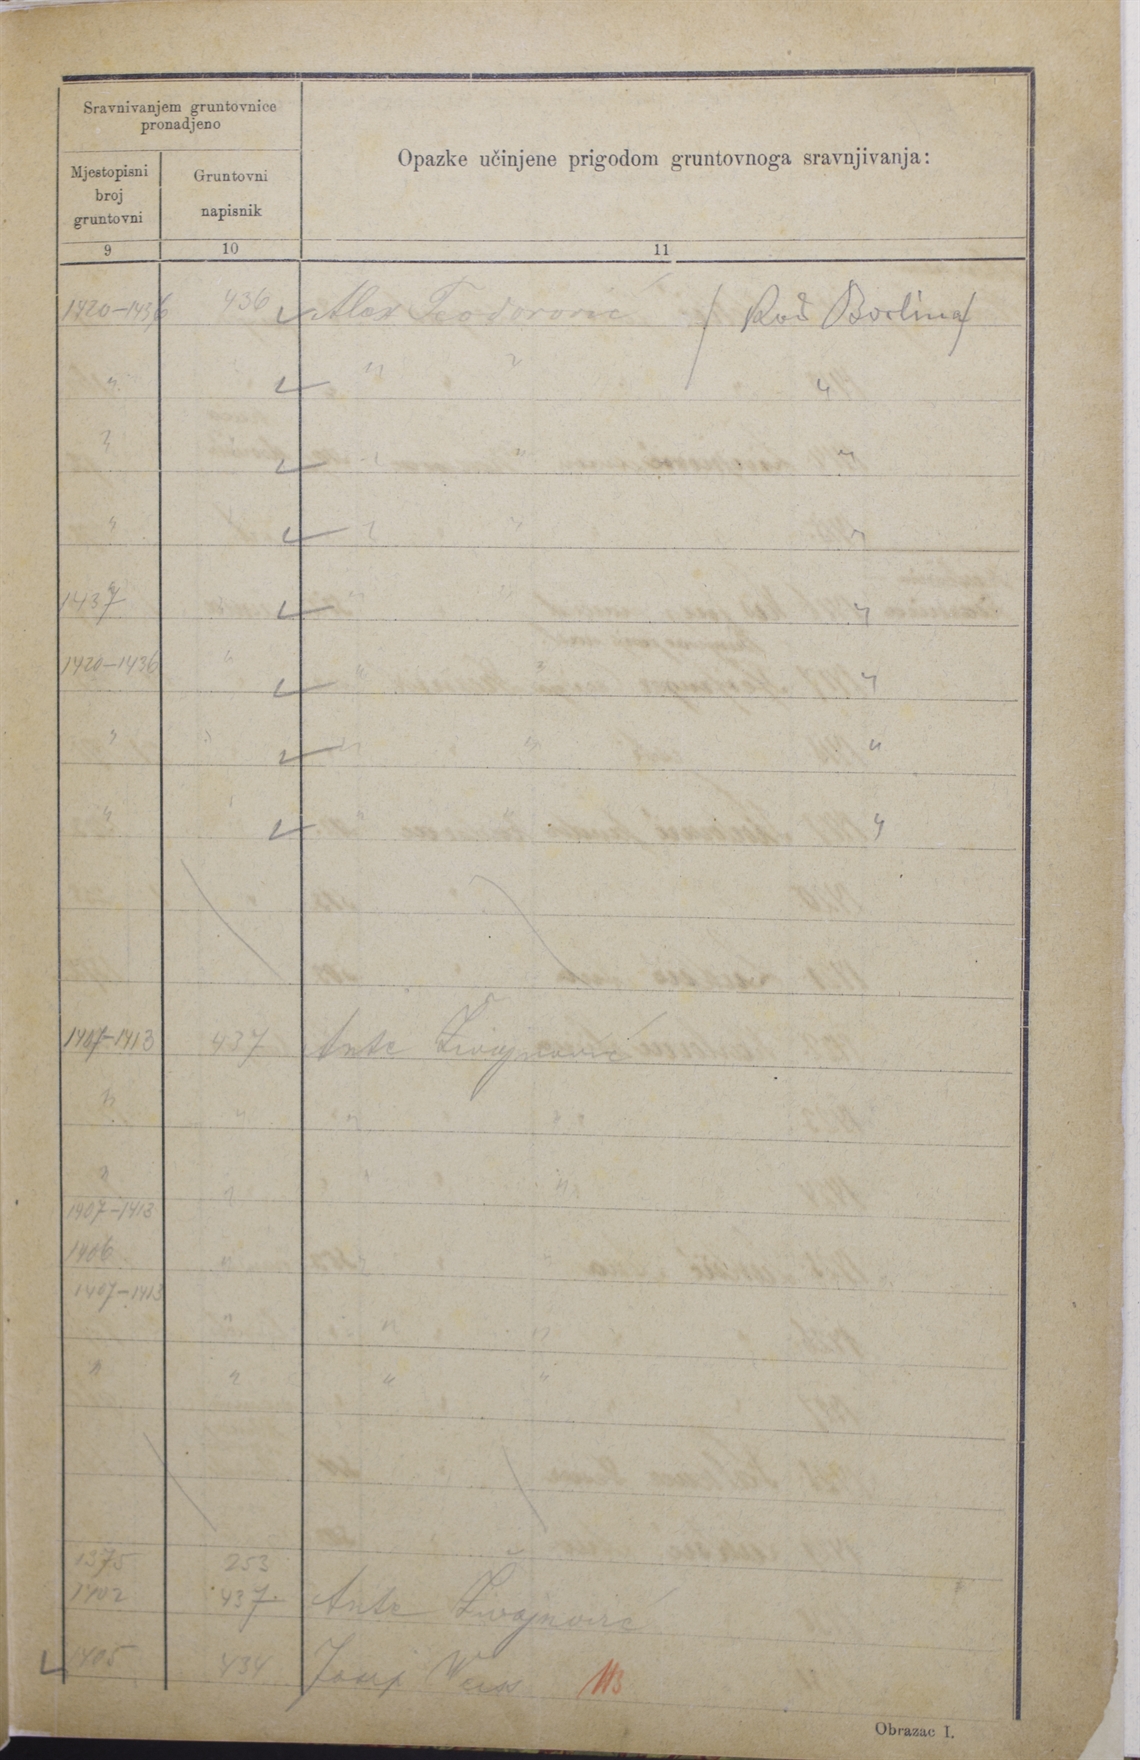 Sravnivanjem gruntovnice pronadjeno
Opazke učinjene prigodom gruntovnoga sravnjivanja:
Mjestopisni broj gruntovni
Gruntovni napisnik
9 10 11
1420-1436 436 Alex Teodorović / Rod Borlina /
" " " "
" "
" " " "
1437 " " "
1420-1436 " " " "
" " " " "
" " " " "
1407-1413 437 Ante Živojnović
" " "
" " "
1407-1413
1406 " "
1407-1413
" " "
" " " "
1375 253
1402 437 Ante Živojnović
1405 434 Josip Weiss
Obrazac I.